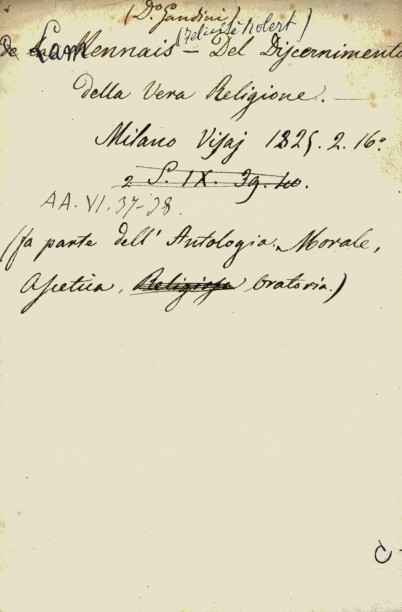 (Do Gandini)
(Felicité Robert)
de Lamennais - Del Discernimento
della Vera Religione. -
Milano Visaj 1825. 2. 16o
2 S. IX. 39. 40.
AA. VI. 37-38.
(fa parte dell' Antologia Morale,
Ascetica, Religiosa Oratoria.)
C